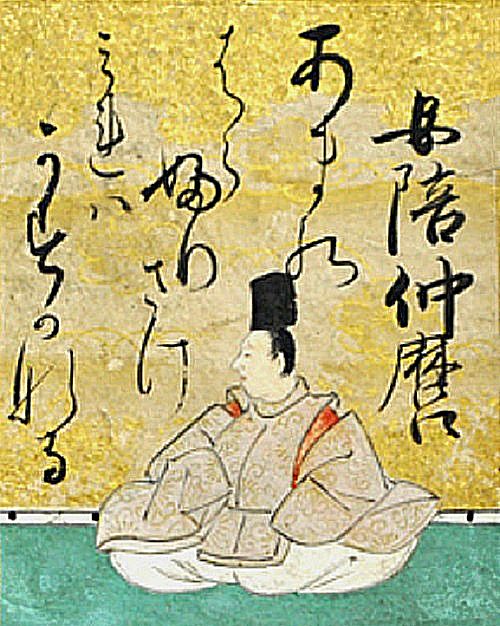 安陪仲麿
あまの
はら
ふりさけ
みれハ
かすかなる